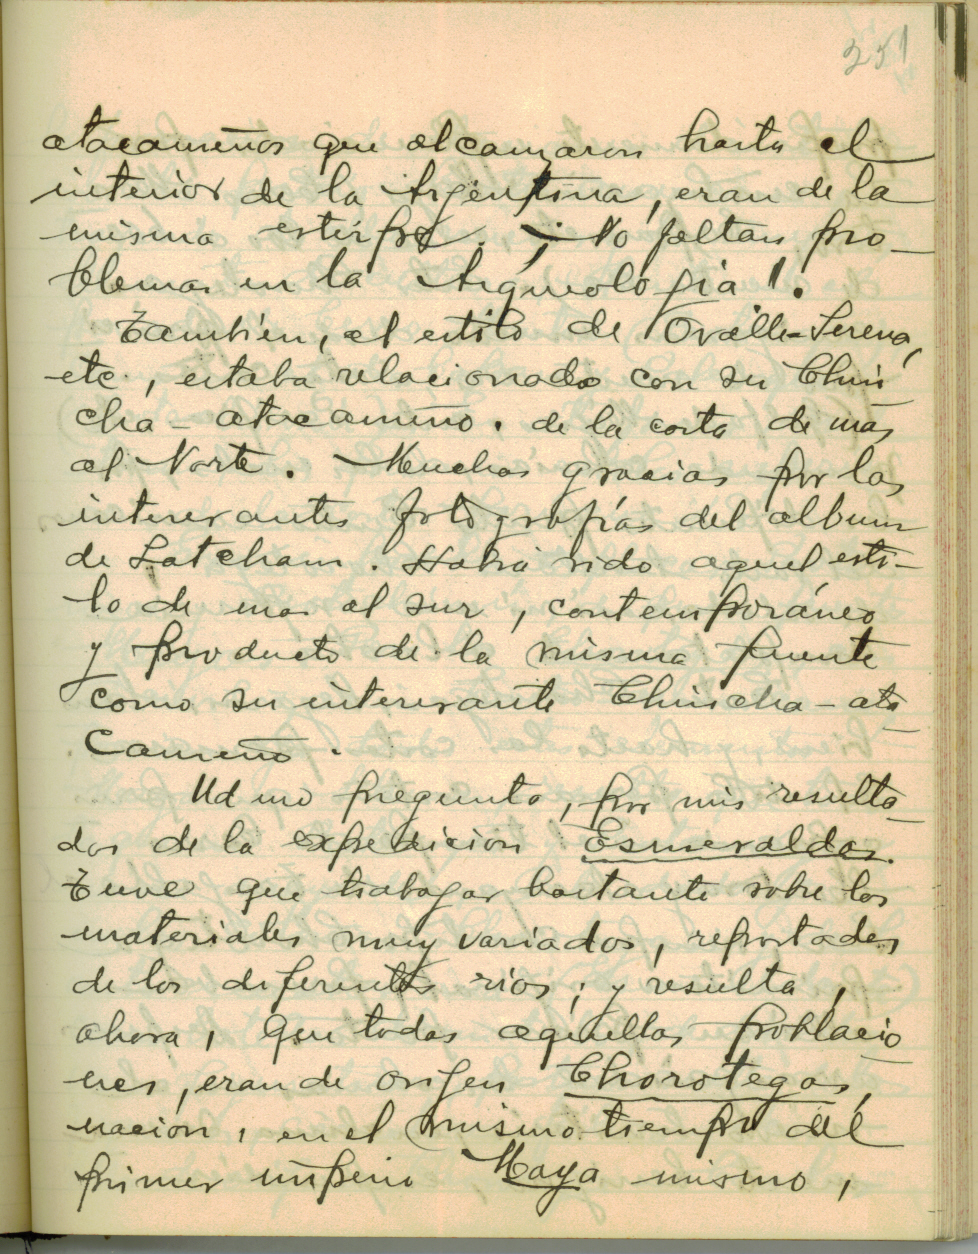 251
atacameños que alcanzaron hasta el
interior de la Argentina, eran de la
misma estirpe. ¡No faltan pro-
blemas en la Arqueología!.
Tambien, el estilo de Ovalle-Serena,
etc, estaba relacionado con su Chin-
cha-atacameño. de la costa de mas
al Norte. Muchas gracias por las
interesantes fotografías del album
de Latcham. Habia sido aquel esti-
lo de mas al sur, contemporáneo
y producto de la misma fuente
como su interesante Chincha-ata-
cameño.
Ud me pregunta, por mis resulta-
dos de la expedicion Esmeraldas.
Tuve que trabajar bastante sobre los
materiales muy variados, reportados
de los diferentes rios; y resulta,
ahora, que todas aquellas problacio-
nes, eran de origen Chorotegas,
nacion, en el mismo tiempo del
primer imperio Maya mismo,